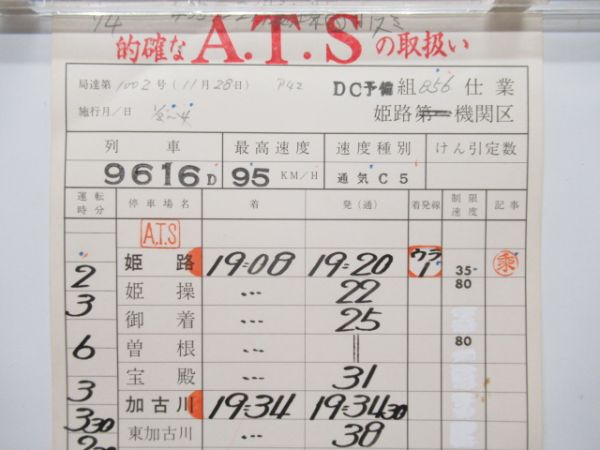 的確な A.T.S の取扱い
局達第 1002 号 (11月28日) P42 DC予備組 856 仕業
施行月/日 1/2~4 姫路第一機関区
列車 最高速度 速度種別 けん引定数
9616D 95 KM/H 通気C5
運転時分 停車場名 着 発(通) 着発線 制限速度 記事
A.T.S
姫路 19=08 19=20 ウラ1 35 乗
2 姫操 … 22 80
3 御着 … 25
曽根 … ‖ 80
6 宝殿 … 31
3 加古川 19=34 19=34 30
3 30 東加古川 … 38